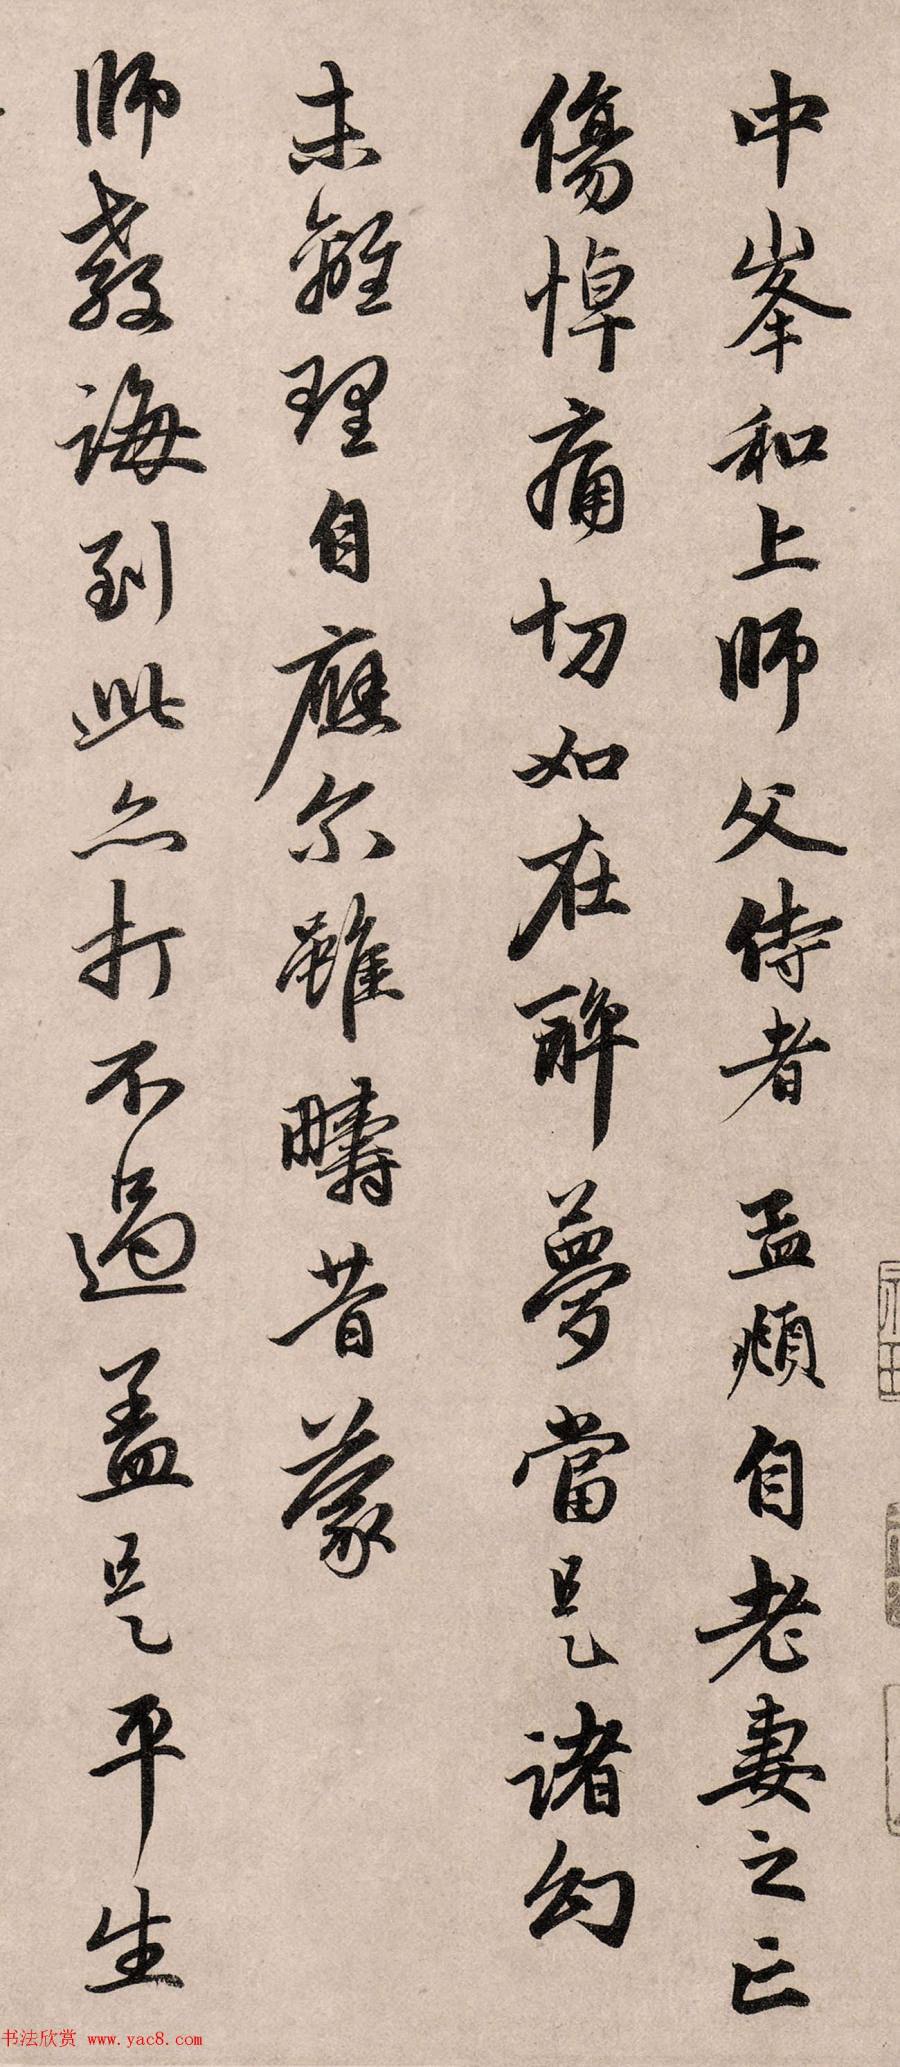 中峯和上師父侍者 孟頫自老妻之亡
傷悼痛切如在醉夢當是諸幻
未離理自應尔雖疇昔蒙
師教誨到此亦打不過蓋是平生
书法欣赏 www.yac8.com